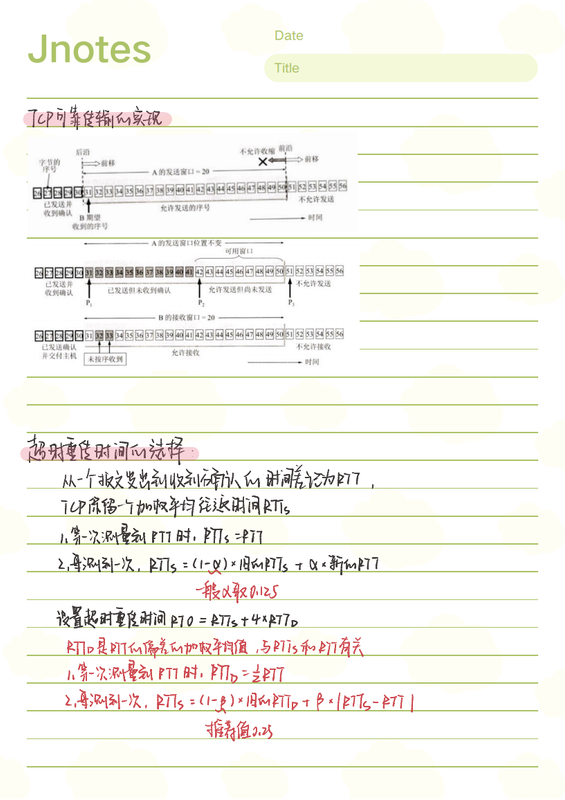 Jnotes
Date
Title
TCP可靠传输的实现
后沿 不允许收缩 前沿
字节的序号 前移 前移
A 的发送窗口 = 20
26 27 28 29 30 31 32 33 34 35 36 37 38 39 40 41 42 43 44 45 46 47 48 49 50 51 52 53 54 55 56
已发送并收到确认 允许发送的序号 不允许发送
B 期望收到的序号 时间
A 的发送窗口位置不变
可用窗口
26 27 28 29 30 31 32 33 34 35 36 37 38 39 40 41 42 43 44 45 46 47 48 49 50 51 52 53 54 55 56
已发送并收到确认 已发送但未收到确认 允许发送但尚未发送 不允许发送
P1 P2 P3
B 的接收窗口 = 20
26 27 28 29 30 31 32 33 34 35 36 37 38 39 40 41 42 43 44 45 46 47 48 49 50 51 52 53 54 55 56
已发送确认并交付主机 允许接收 不允许接收
未按序收到 时间
超时重传时间的选择
从一个报文发出到收到确认的时间差记为RTT,
TCP保留一个加权平均往返时间RTTs
1.第一次测量到RTT时,RTTs=RTT
2.再测到一次,RTTs=(1-α)×旧的RTTs+α×新的RTT
一般α取0.125
设置超时重传时间RTO=RTTs+4×RTTD
RTTD是RTT的偏差的加权平均值,与RTTs和RTT有关
1.第一次测量到RTT时,RTTD=½RTT
2.再测到一次,RTTs=(1-β)×旧的RTTD+β×|RTTs-RTT|
推荐值0.25